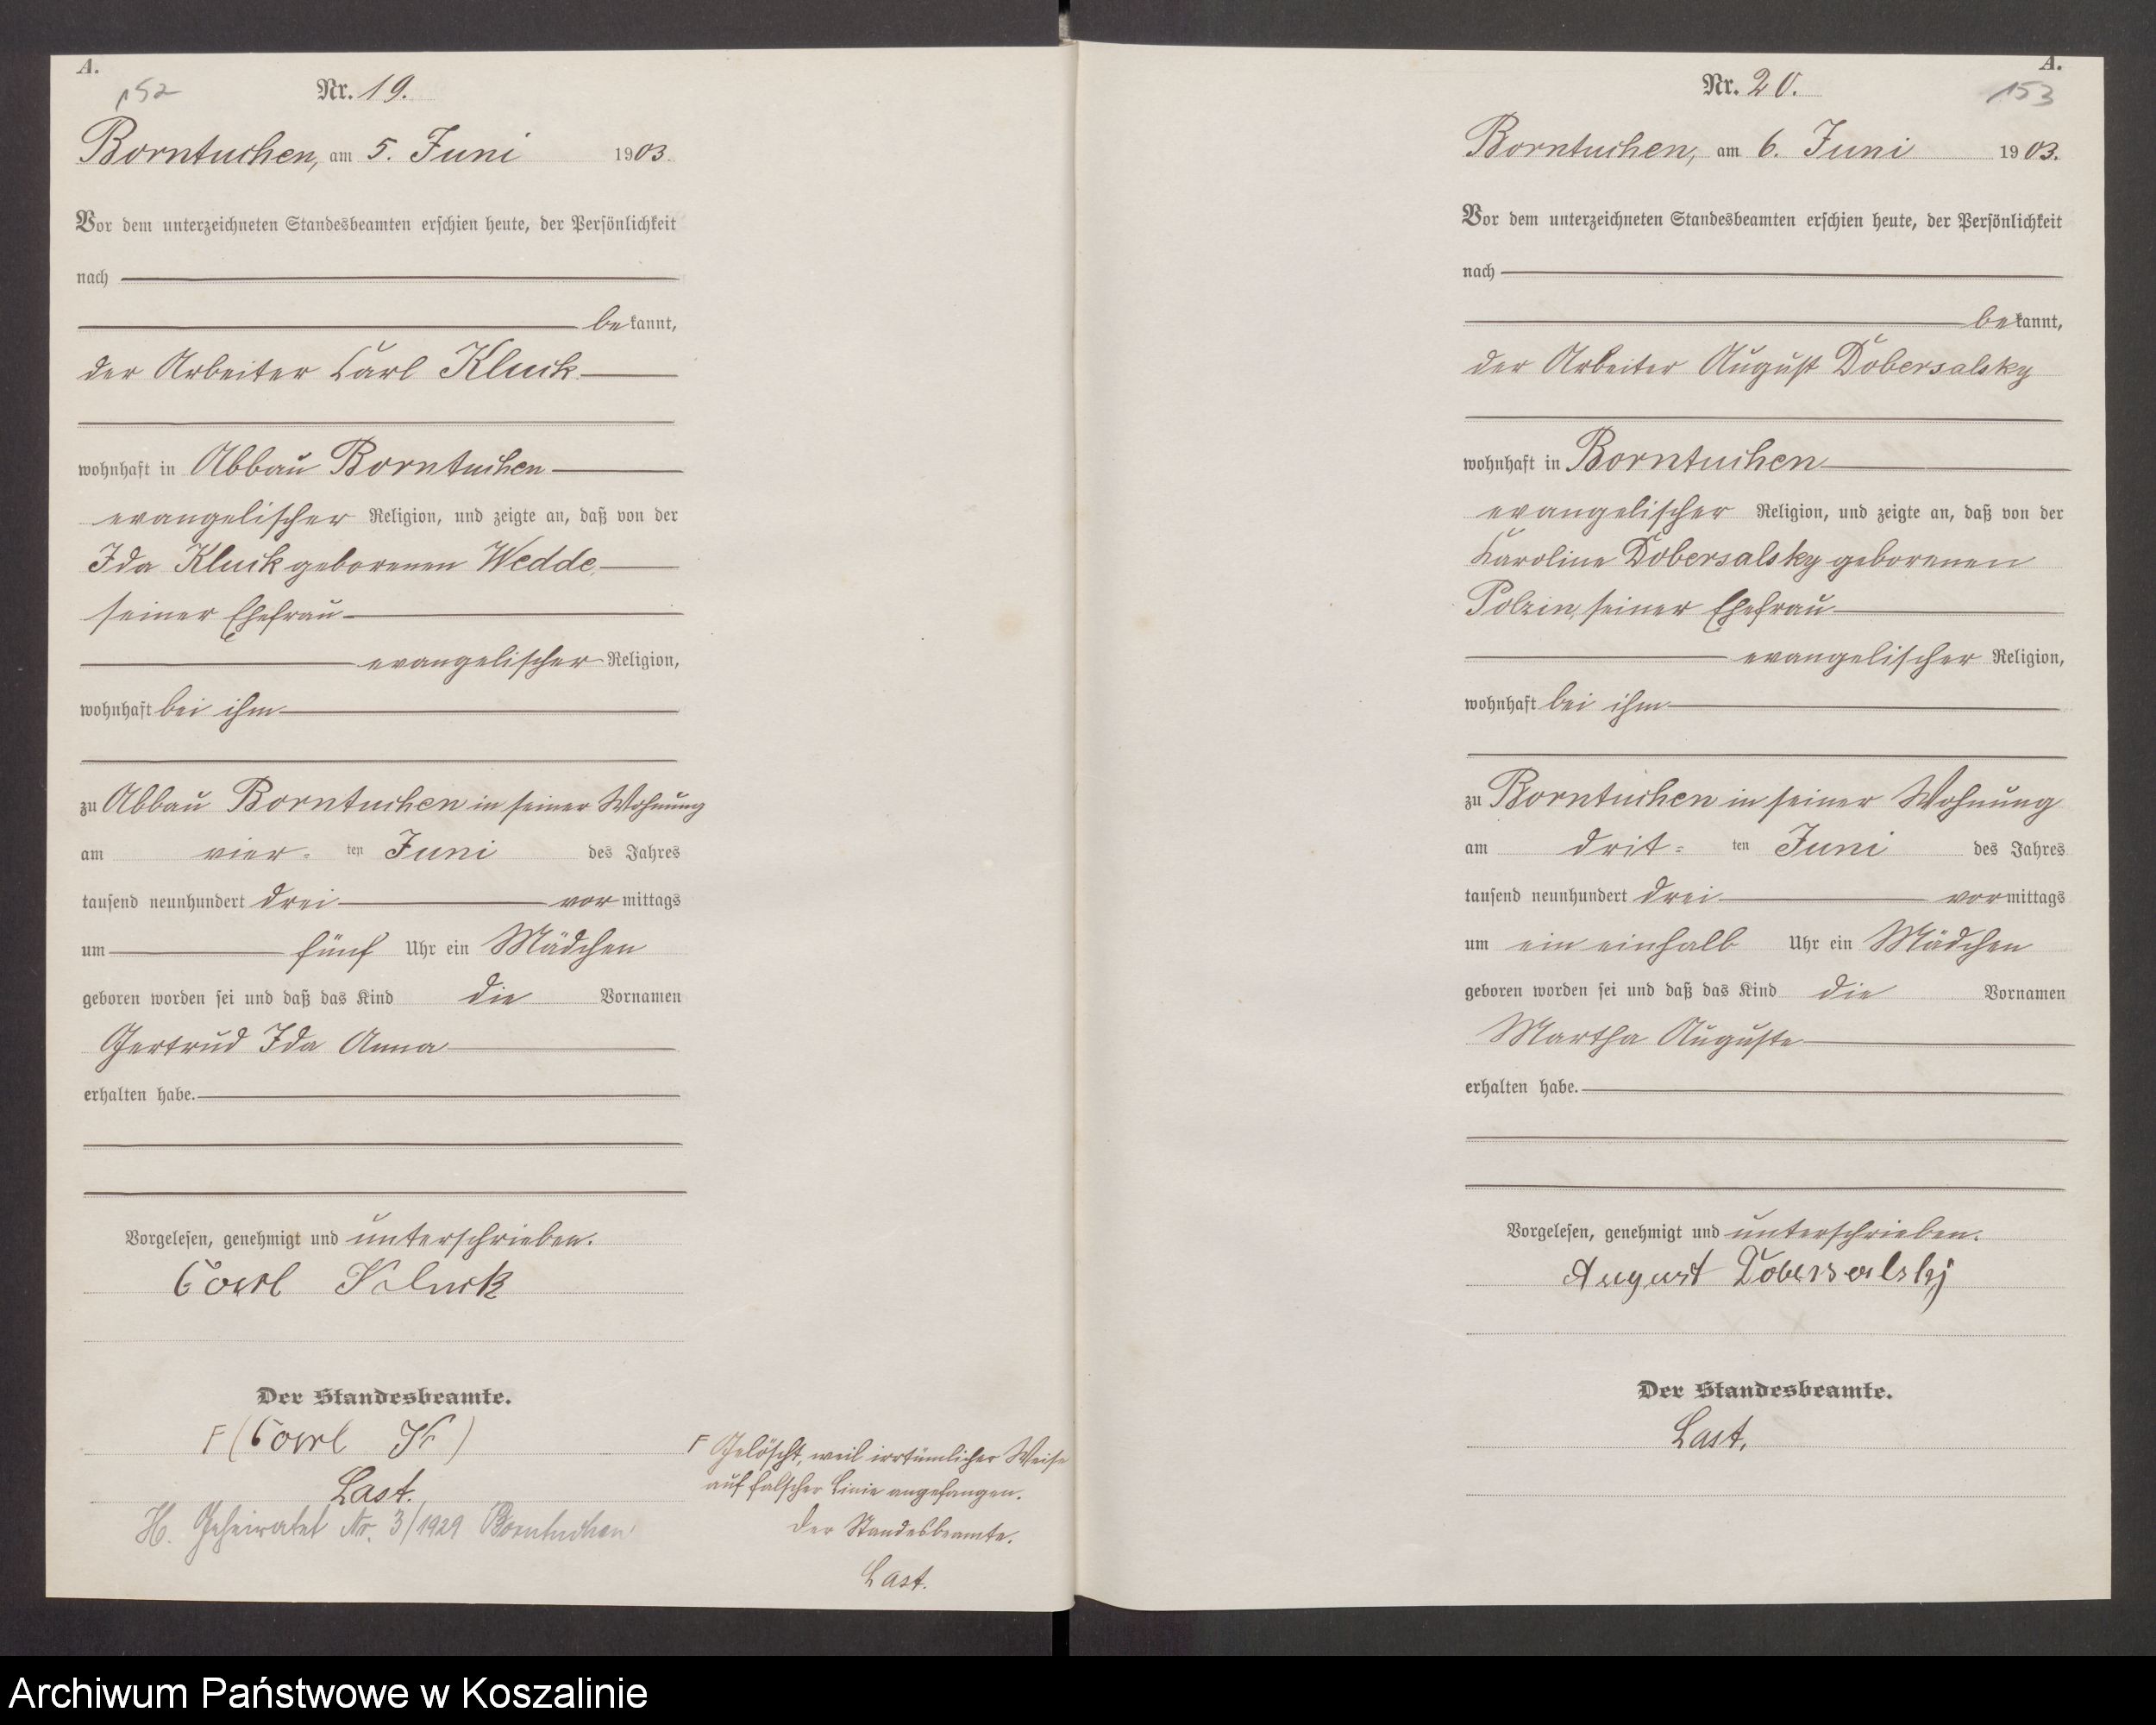 A.
152
Nr. 19.
Borntuchen, am 5. Juni 1903.
Vor dem unterzeichneten Standesbeamten erschien heute, der Persönlichkeit
nach
bekannt,
der Arbeiter Carl Kluck
wohnhaft in Abbau Borntuchen
evangelischer Religion, und zeigte an, daß von der
Ida Kluck geborenen Wedde,
seiner Ehefrau
evangelischer Religion,
wohnhaft bei ihm
zu Abbau Borntuchen in seiner Wohnung
am vier- ten Juni des Jahres
tausend neunhundert drei vormittags
um fünf Uhr ein Mädchen
geboren worden sei und daß das Kind die Vornamen
Gertrud Ida Anna
erhalten habe.
Vorgelesen, genehmigt und unterschrieben.
Carl Kluck
Der Standesbeamte.
F (Carl K)
Last.
H. Geheiratet Nr. 3/1929 Borntuchen
F Gelöscht, weil irrtümlicher Weise
auf falscher Linie angefangen.
Der Standesbeamte.
Last.
A.
153
Nr. 20.
Borntuchen, am 6. Juni 1903.
Vor dem unterzeichneten Standesbeamten erschien heute, der Persönlichkeit
nach
bekannt,
der Arbeiter August Dobersalsky
wohnhaft in Borntuchen
evangelischer Religion, und zeigte an, daß von der
Karoline Dobersalsky geborenen
Polzin, seiner Ehefrau
evangelischer Religion,
wohnhaft bei ihm
zu Borntuchen in seiner Wohnung
am drit- ten Juni des Jahres
tausend neunhundert drei vormittags
um ein einhalb Uhr ein Mädchen
geboren worden sei und daß das Kind die Vornamen
Martha Auguste
erhalten habe.
Vorgelesen, genehmigt und unterschrieben.
August Dobersalskj
Der Standesbeamte.
Last.
Archiwum Państwowe w Koszalinie